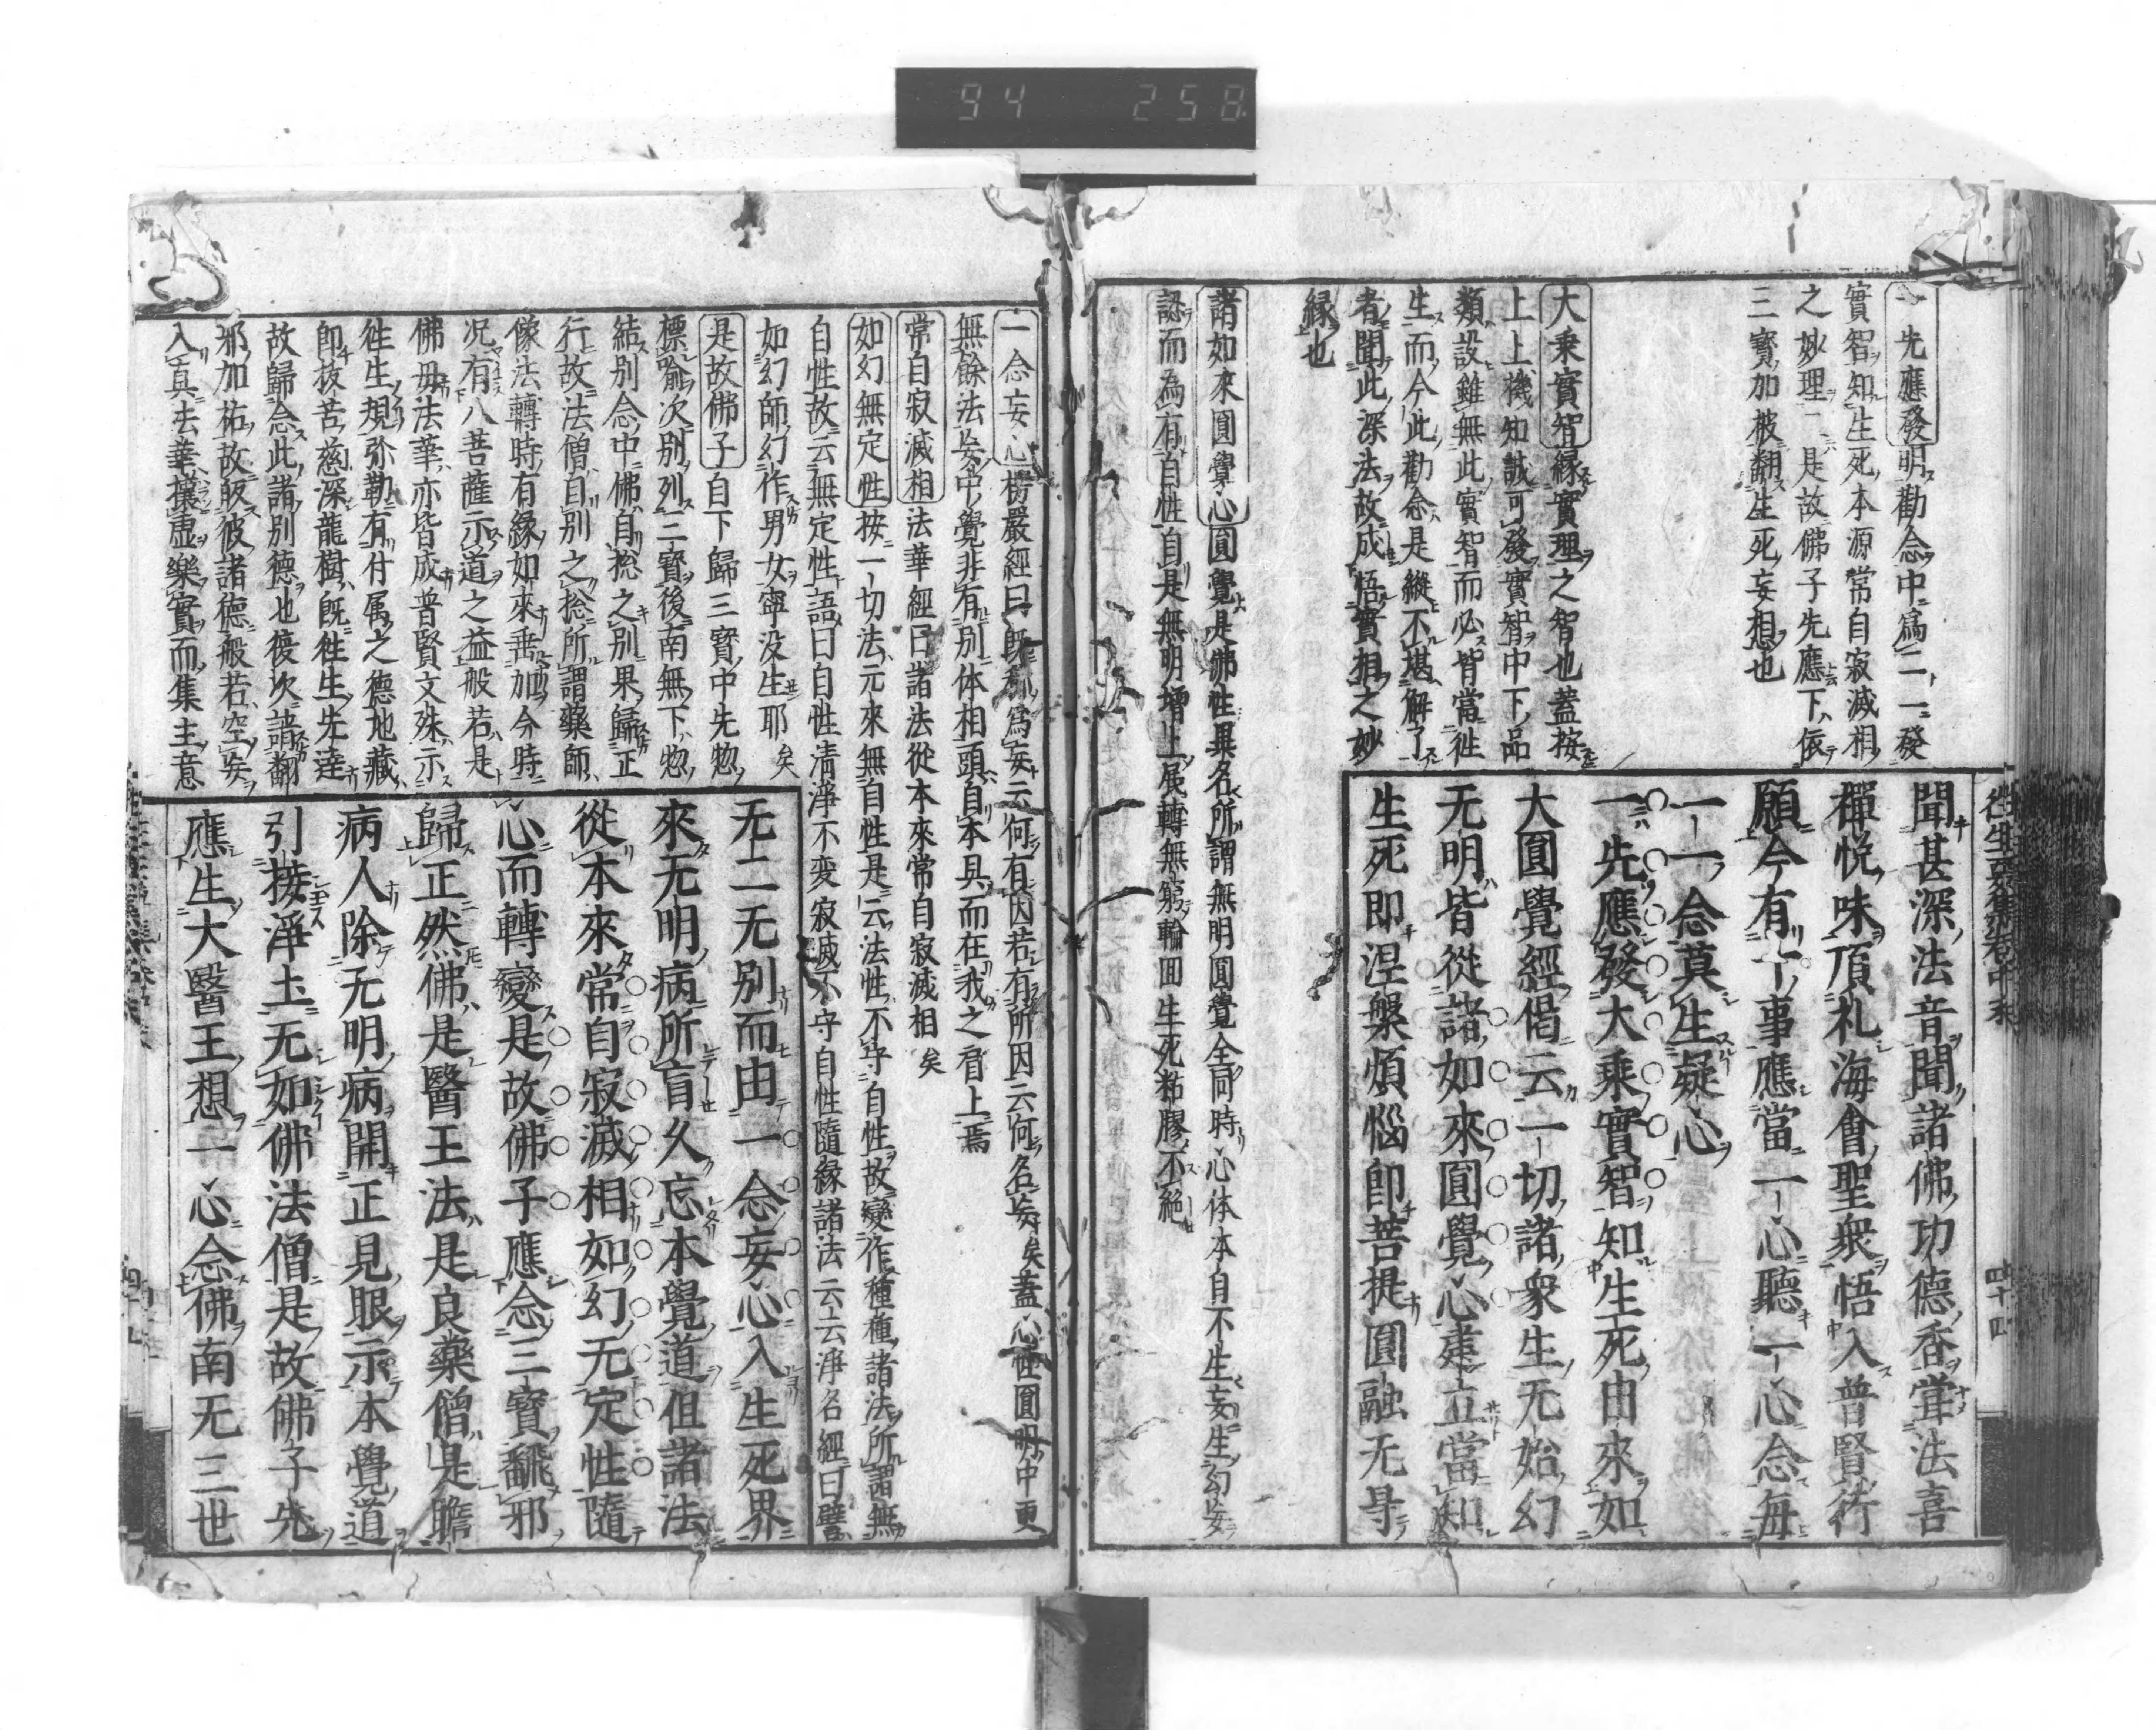 94 258
一先應發明勸念中爲二一發
實智知生死本源常自寂滅相
之妙理二是故佛子先應下依
三寳加被翻生死妄想也
大乘實智縁實理之智也蓋按
上上機知誠可發實智中下品
類設雖無此實智而必皆當徃
生而今此勸念是縱不堪解了
者聞此深法故成悟實相之妙
縁也
諸如來圓覺心圓覺是佛性異名所謂無明圓覺全同時心体本自不生妄生幻妄
認而為有自性自是無明增上展轉無窮輪回生死粘膠不絶
徃生要集卷中末
四十四
聞甚深法音聞諸佛功德香甞法喜
禪悦味頂礼海會聖衆悟入普賢行
願今有十事應當一心聽一心念毎
一一念莫生疑心
一先應發大乘實智知生死由來如
大圓覺經偈云一切諸衆生无始幻
无明皆從諸如來圓覺心建立當知
生死即涅槃煩惱即菩提圓融无㝵
一念妄心楞嚴經曰既稱爲妄云何有因若有所因云何名妄矣蓋心性圓明中更
無餘法妄中覺非有別体相頭自本具而在我之眉上焉
常自寂滅相法華經曰諸法從本來常自寂滅相矣
如幻無定性按一切法元來無自性是云法性不守自性故變作種種諸法所謂無
自性故云無定性語曰自性清淨不変寂滅不守自性隨縁諸法云云淨名經曰譬
如幻師幻作男女寧没生耶矣
是故佛子自下歸三寳中先惣
標喩次別列三寳後南無下惣
結別念中佛自捴之別果歸正
行故法僧自別之捴所謂藥師
像法轉時有縁如來垂加今時
况有八菩薩示道之益般若是
佛毋法華亦皆成普賢文殊示
徃生規弥勒有付属之德地藏
即抜苦慈深龍樹既徃生先達
故歸念此諸別德也後次請翻
邪加祐故皈彼諸德般若空妄
入真法華攘虚樂實而集主意
无二无別而由一念妄心入生死界
來无明病所盲久忘本覺道但諸法
從本來常自寂滅相如幻无定性隨
心而轉變是故佛子應念三寳飜邪
歸正然佛是醫王法是良藥僧是瞻
病人除无明病開正見眼示本覺道
引接淨土无如佛法僧是故佛子先
應生大醫王想一心念佛南无三世